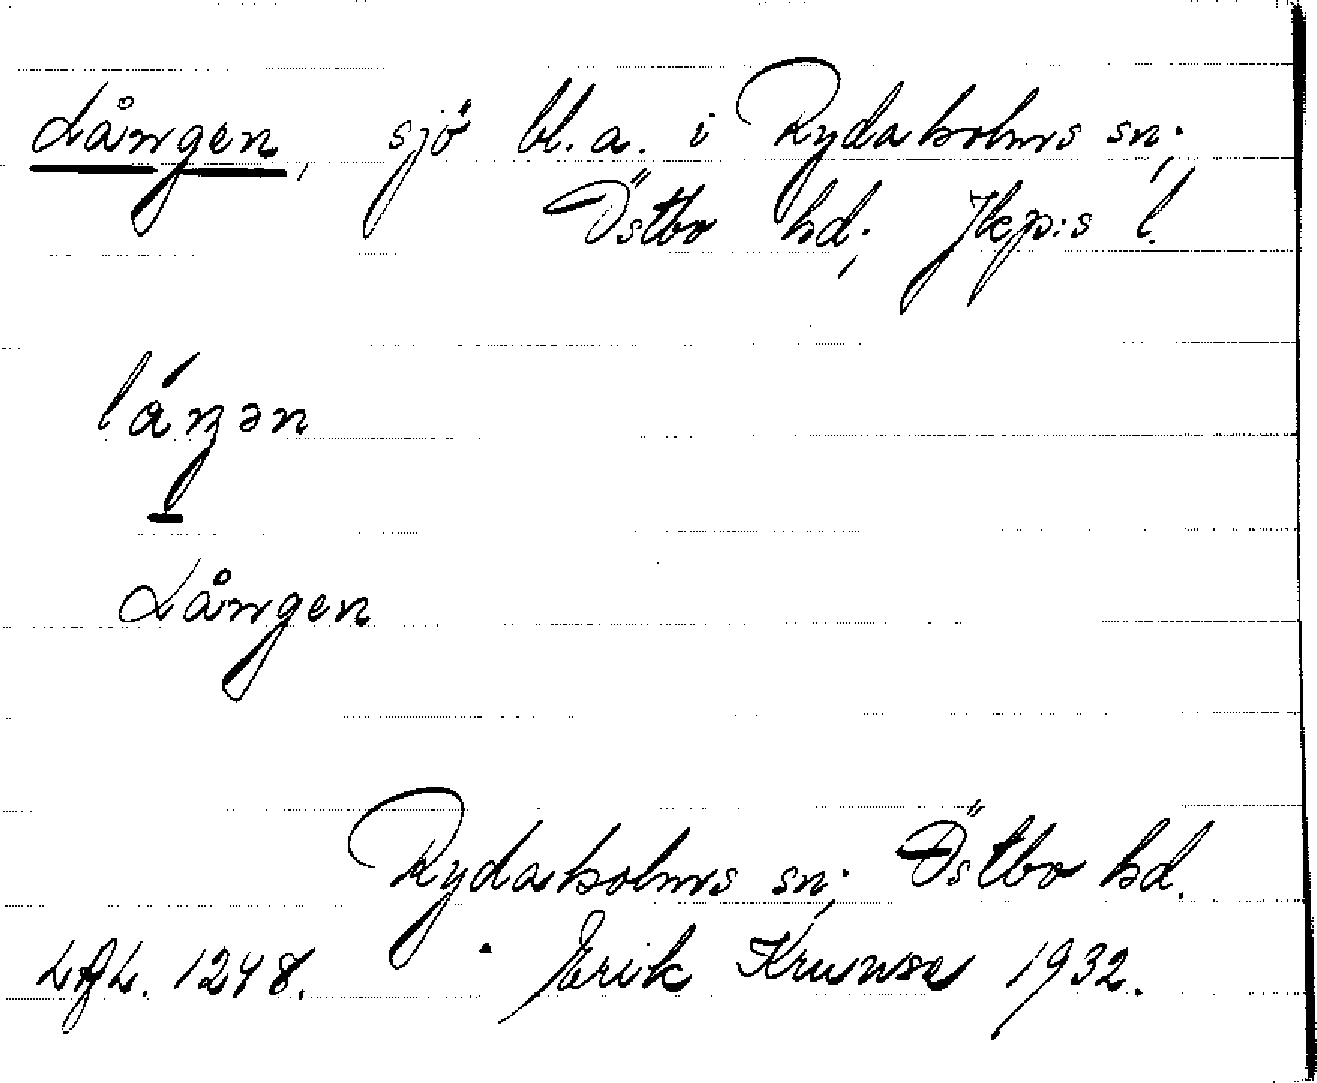 Lången, sjö bl.a. i Rydaholms sn;
Östbo hd; Jkp:s l.
láŋən
Lången
Rydaholms sn; Östbo hd.
1248. Erik 1932.